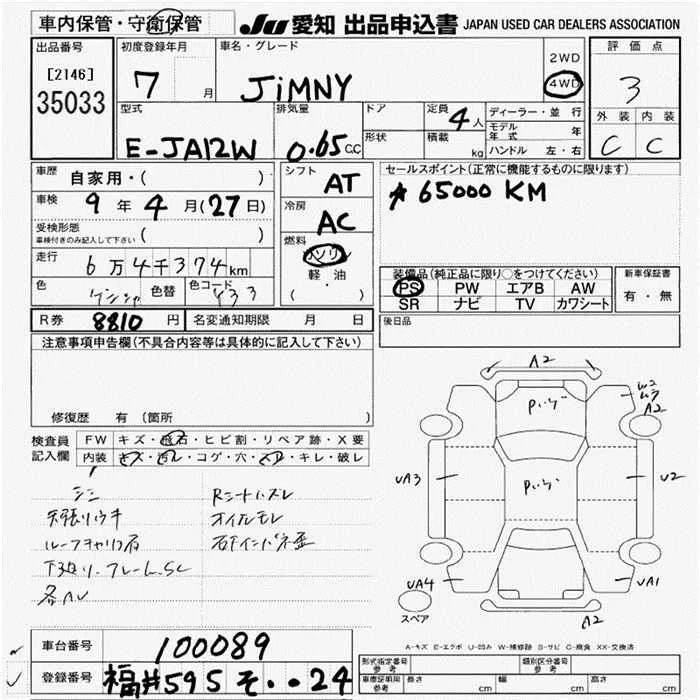 車内保管・守衛保管
JU 愛知 出品申込書 JAPAN USED CAR DEALERS ASSOCIATION
出品番号
[2146]
35033
初度登録年月
7 月
車名・グレード
JiMNY
2WD
4WD
評価点
3
外装 内装
C C
型式
E-JA12W
排気量
0.65 C.C
ドア
形状
定員 4 人
積載 kg
ディーラー・並行
モデル年式 年
ハンドル 左・右
車歴 自家用・( )
車検 9 年 4 月(27日)
受検形態
車検付きのみ記入して下さい ( )
走行 6万4千374km
色 色替 色コード
シフト AT
冷房 AC
燃料
ガソリン
軽油
( ・ )
セールスポイント(正常に機能するものに限ります)
65000 KM
装備品(純正品に限り○をつけてください)
PS PW エアB AW
SR ナビ TV カワシート
新車保証書
有・無
R券 8810 円 名変通知期限 月 日
後日品
注意事項申告欄(不具合内容等は具体的に記入して下さい)
修復歴 有 (箇所 )
検査員記入欄
FW キズ・飛石・ヒビ割・リペア跡・X要
内装 キズ・汚レ・コゲ・穴・スレ・キレ・破レ
天張リウキ
オイルモレ
A2
A2
UA3
U2
UA4
UA1
A2
スペア
A-キズ E-エクボ U-凹み W-補修跡 S-サビ C-腐食 XX-交換済
車台番号 100089
登録番号 福井595そ・・24
形式指定番号 参考
類別区分番号 参考
車庫証明用 参考 長さ cm 幅 cm 高さ cm